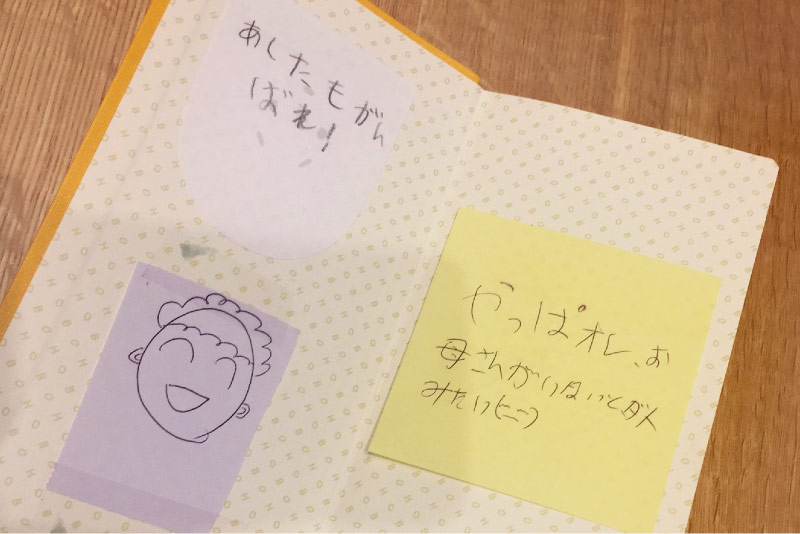 あしたもがん
ばれ!
やっぱオレ、お
母さんがいないとダメ
みたい(ニニ)